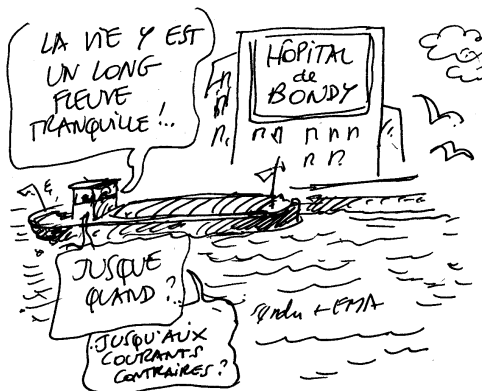 LA VIE Y EST
UN LONG
FLEUVE
TRANQUILLE!..
HÔPITAL
de
BONDY
JUSQUE
QUAND?
..JUSQU'AUX
COURANTS
CONTRAIRES?